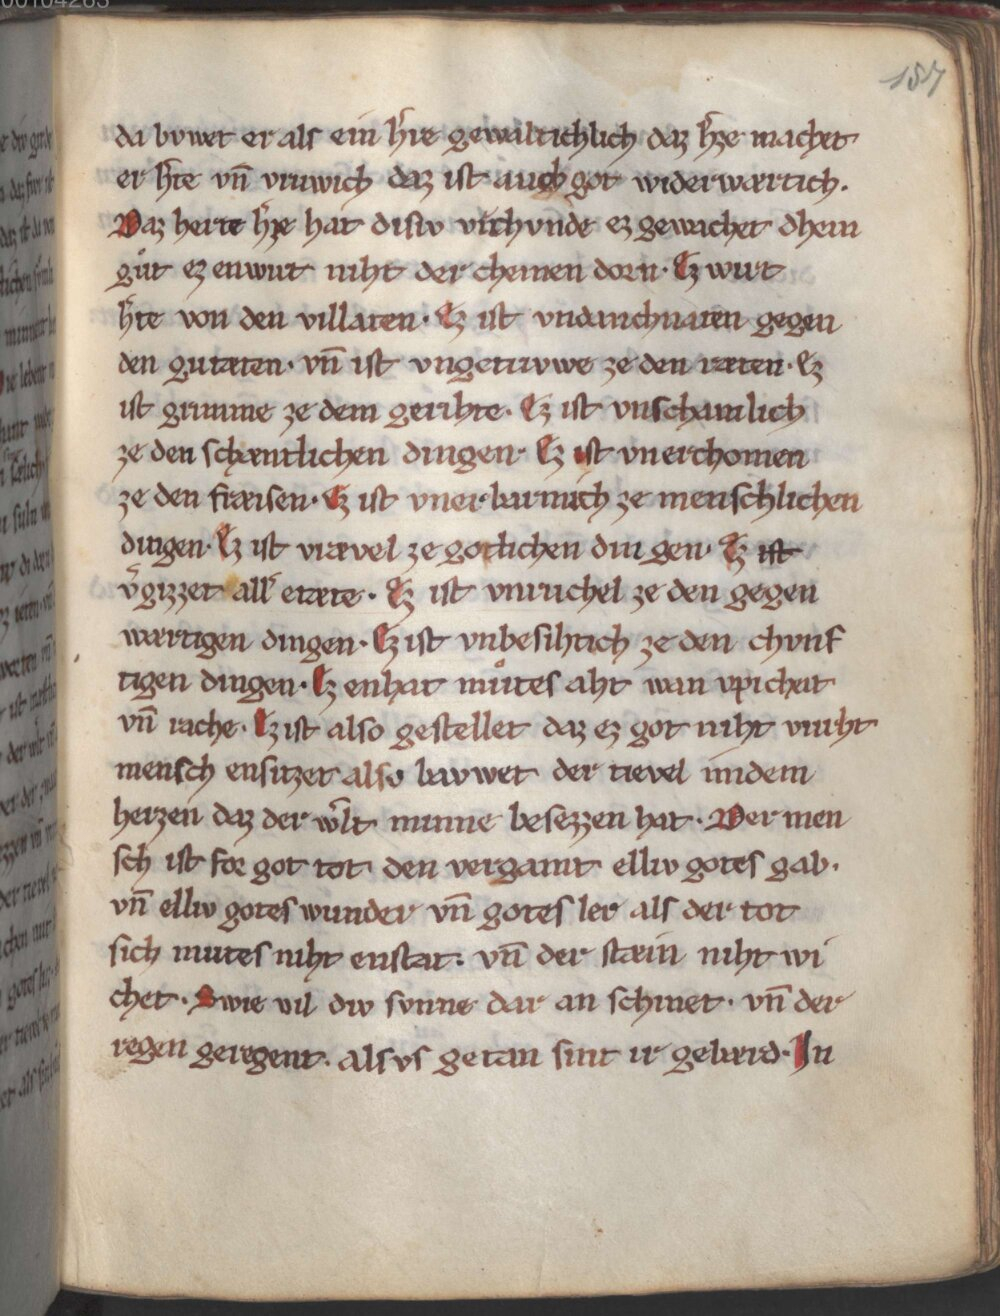 157
da bvwet er als ein h͛re gewaltichlich daz h͛ze machet
er h͛te vn̄ vruwich daz ist auch got widerwærtich.
Daz herte h͛ze hat disiv vrchvnde ez gewachet dhein
gůt ez enwirt niht der cheinen dorn. Ez wirt
h͛te von den villaten. Ez ist vndanchnæen gegen
den gutæten. vn̄ ist vngetrvwe ze den ræten. Ez
ist grimme ze dem gerihte. Ez ist vnschamlich
ze den schæntlichen dingen. Ez ist vnerchomen
ze den fræisen. Ez ist vnerbarmich ze menschlichen
dingen. Ez ist vrævel ze gotlichen dingen. Ez ist
v͛gizzet all͛ etæte. Ez ist vnruchel ze den gegen
wærtigen dingen. Ez ist vnbesihtich ze den chvnf
tigen dingen. Ez enhat můtes aht wan vpicheit
vn̄ rache. Ez ist also gestellet daz ez got niht vurht
mensch ensitzet also bawet der tievel in dem
herzen daz der w͛lt minne besezzen hat. Der men
sch ist for got tot den vergamt elliv gotes gab.
vn̄ elliv gotes wunder vn̄ gotes ler als der tot
sich mutes niht enstat. vn̄ der stæin niht wi
chet. Swie vil div svnne dar an schinet. vn̄ der
regen geregent. als vs getan sint ir gebærd. In